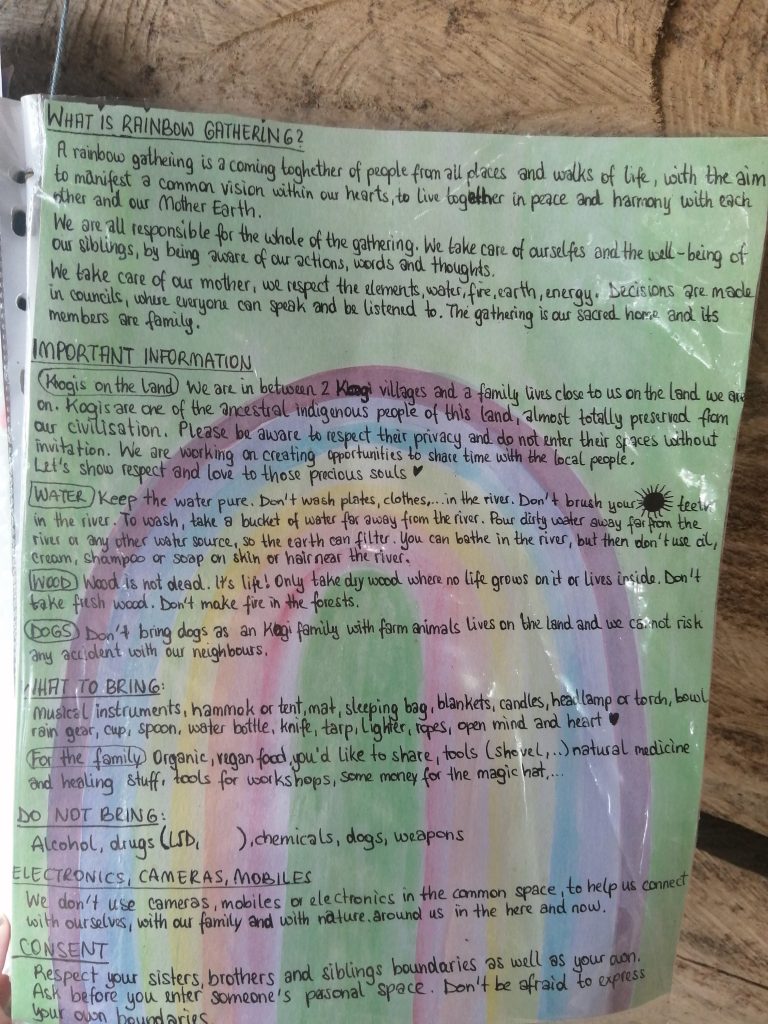 WHAT IS RAINBOW GATHERING?
A rainbow gathering is a coming toghether of people from all places and walks of life, with the aim
to manifest a common vision within our hearts, to live together in peace and harmony with each
other and our Mother Earth.
We are all responsible for the whole of the gathering. We take care of ourselfes and the well-being of
our siblings, by being aware of our actions, words and thoughts.
We take care of our mother, we respect the elements, water, fire, earth, energy. Decisions are made
in councils, where everyone can speak and be listened to. The gathering is our sacred home and its
members are family.
IMPORTANT INFORMATION
Kogis on the land We are in between 2 Kogi villages and a family lives close to us on the land we are
on. Kogis are one of the ancestral indigenous people of this land, almost totally preserved from
our civilisation. Please be aware to respect their privacy and do not enter their spaces without
invitation. We are working on creating opportunities to share time with the local people.
Let's show respect and love to those precious souls ♥
WATER Keep the water pure. Don't wash plates, clothes,... in the river. Don't brush your teeth
in the river. To wash, take a bucket of water far away from the river. Pour dirty water away far from the
river or any other water source, so the earth can filter. You can bathe in the river, but then don't use oil,
cream, shampoo or soap on skin or hair near the river.
WOOD Wood is not dead. It's life! Only take dry wood where no life grows on it or lives inside. Don't
take fresh wood. Don't make fire in the forests.
DOGS Don't bring dogs as an Kogi family with farm animals lives on the land and we cannot risk
any accident with our neighbours.
WHAT TO BRING:
Musical instruments, hammok or tent, mat, sleeping bag, blankets, candles, headlamp or torch, bowl
rain gear, cup, spoon, water bottle, knife, tarp, lighter, ropes, open mind and heart ♥
For the family Organic, vegan food, you'd like to share, tools (shovel,..) natural medicine
and healing stuff, tools for workshops, some money for the magic hat,...
DO NOT BRING:
Alcohol, drugs (LSD, ), chemicals, dogs, weapons
ELECTRONICS, CAMERAS, MOBILES
We don't use cameras, mobiles or electronics in the common space, to help us connect
with ourselves, with our family and with nature around us in the here and now.
CONSENT
Respect your sisters, brothers and siblings boundaries as well as your own.
Ask before you enter someone's pesonal space. Don't be afraid to express
your own boundaries